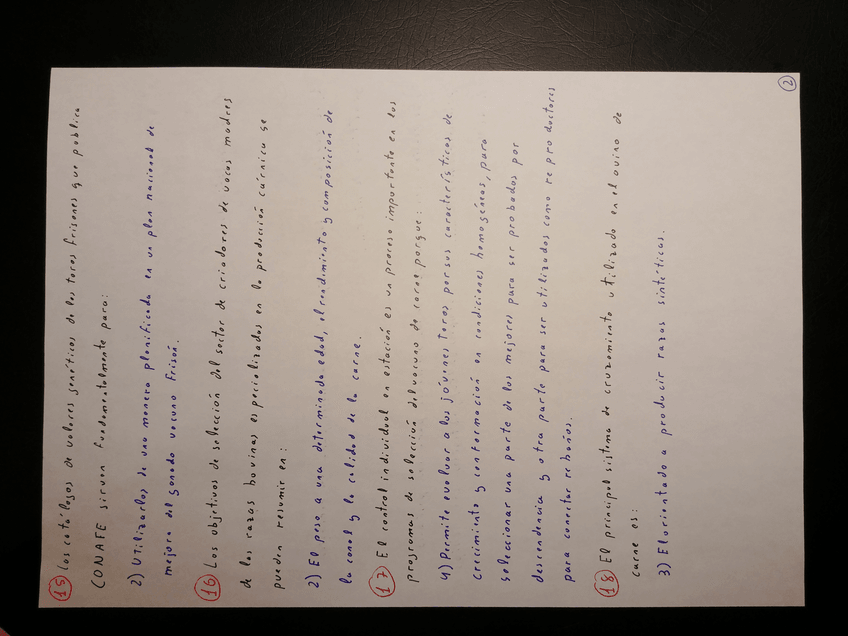 2
15 Los catálogos de valores genéticos de los toros frisones que publica
CONAFE sirven fundamentalmente para:
2) Utilizarlos de una manera planificada en un plan nacional de
mejora del ganado vacuno Frisón.
16 Los objetivos de selección del sector de criadores de vacas madres
de las razas bovinas especializadas en la producción cárnica se
pueden resumir en:
2) El peso a una determinada edad, el rendimiento y composición de
la canal y la calidad de la carne.
17 El control individual en estación es un proceso importante en los
programas de selección del vacuno de carne porque:
4) Permite evaluar a los jóvenes toros por sus características de
crecimiento y conformación en condiciones homogéneas, para
seleccionar una parte de los mejores para ser probados por
descendencia y otra parte para ser utilizados como reproductores
para conectar rebaños.
18 El principal sistema de cruzamiento utilizado en el ovino de
carne es:
3) El orientado a producir razas sintéticas.